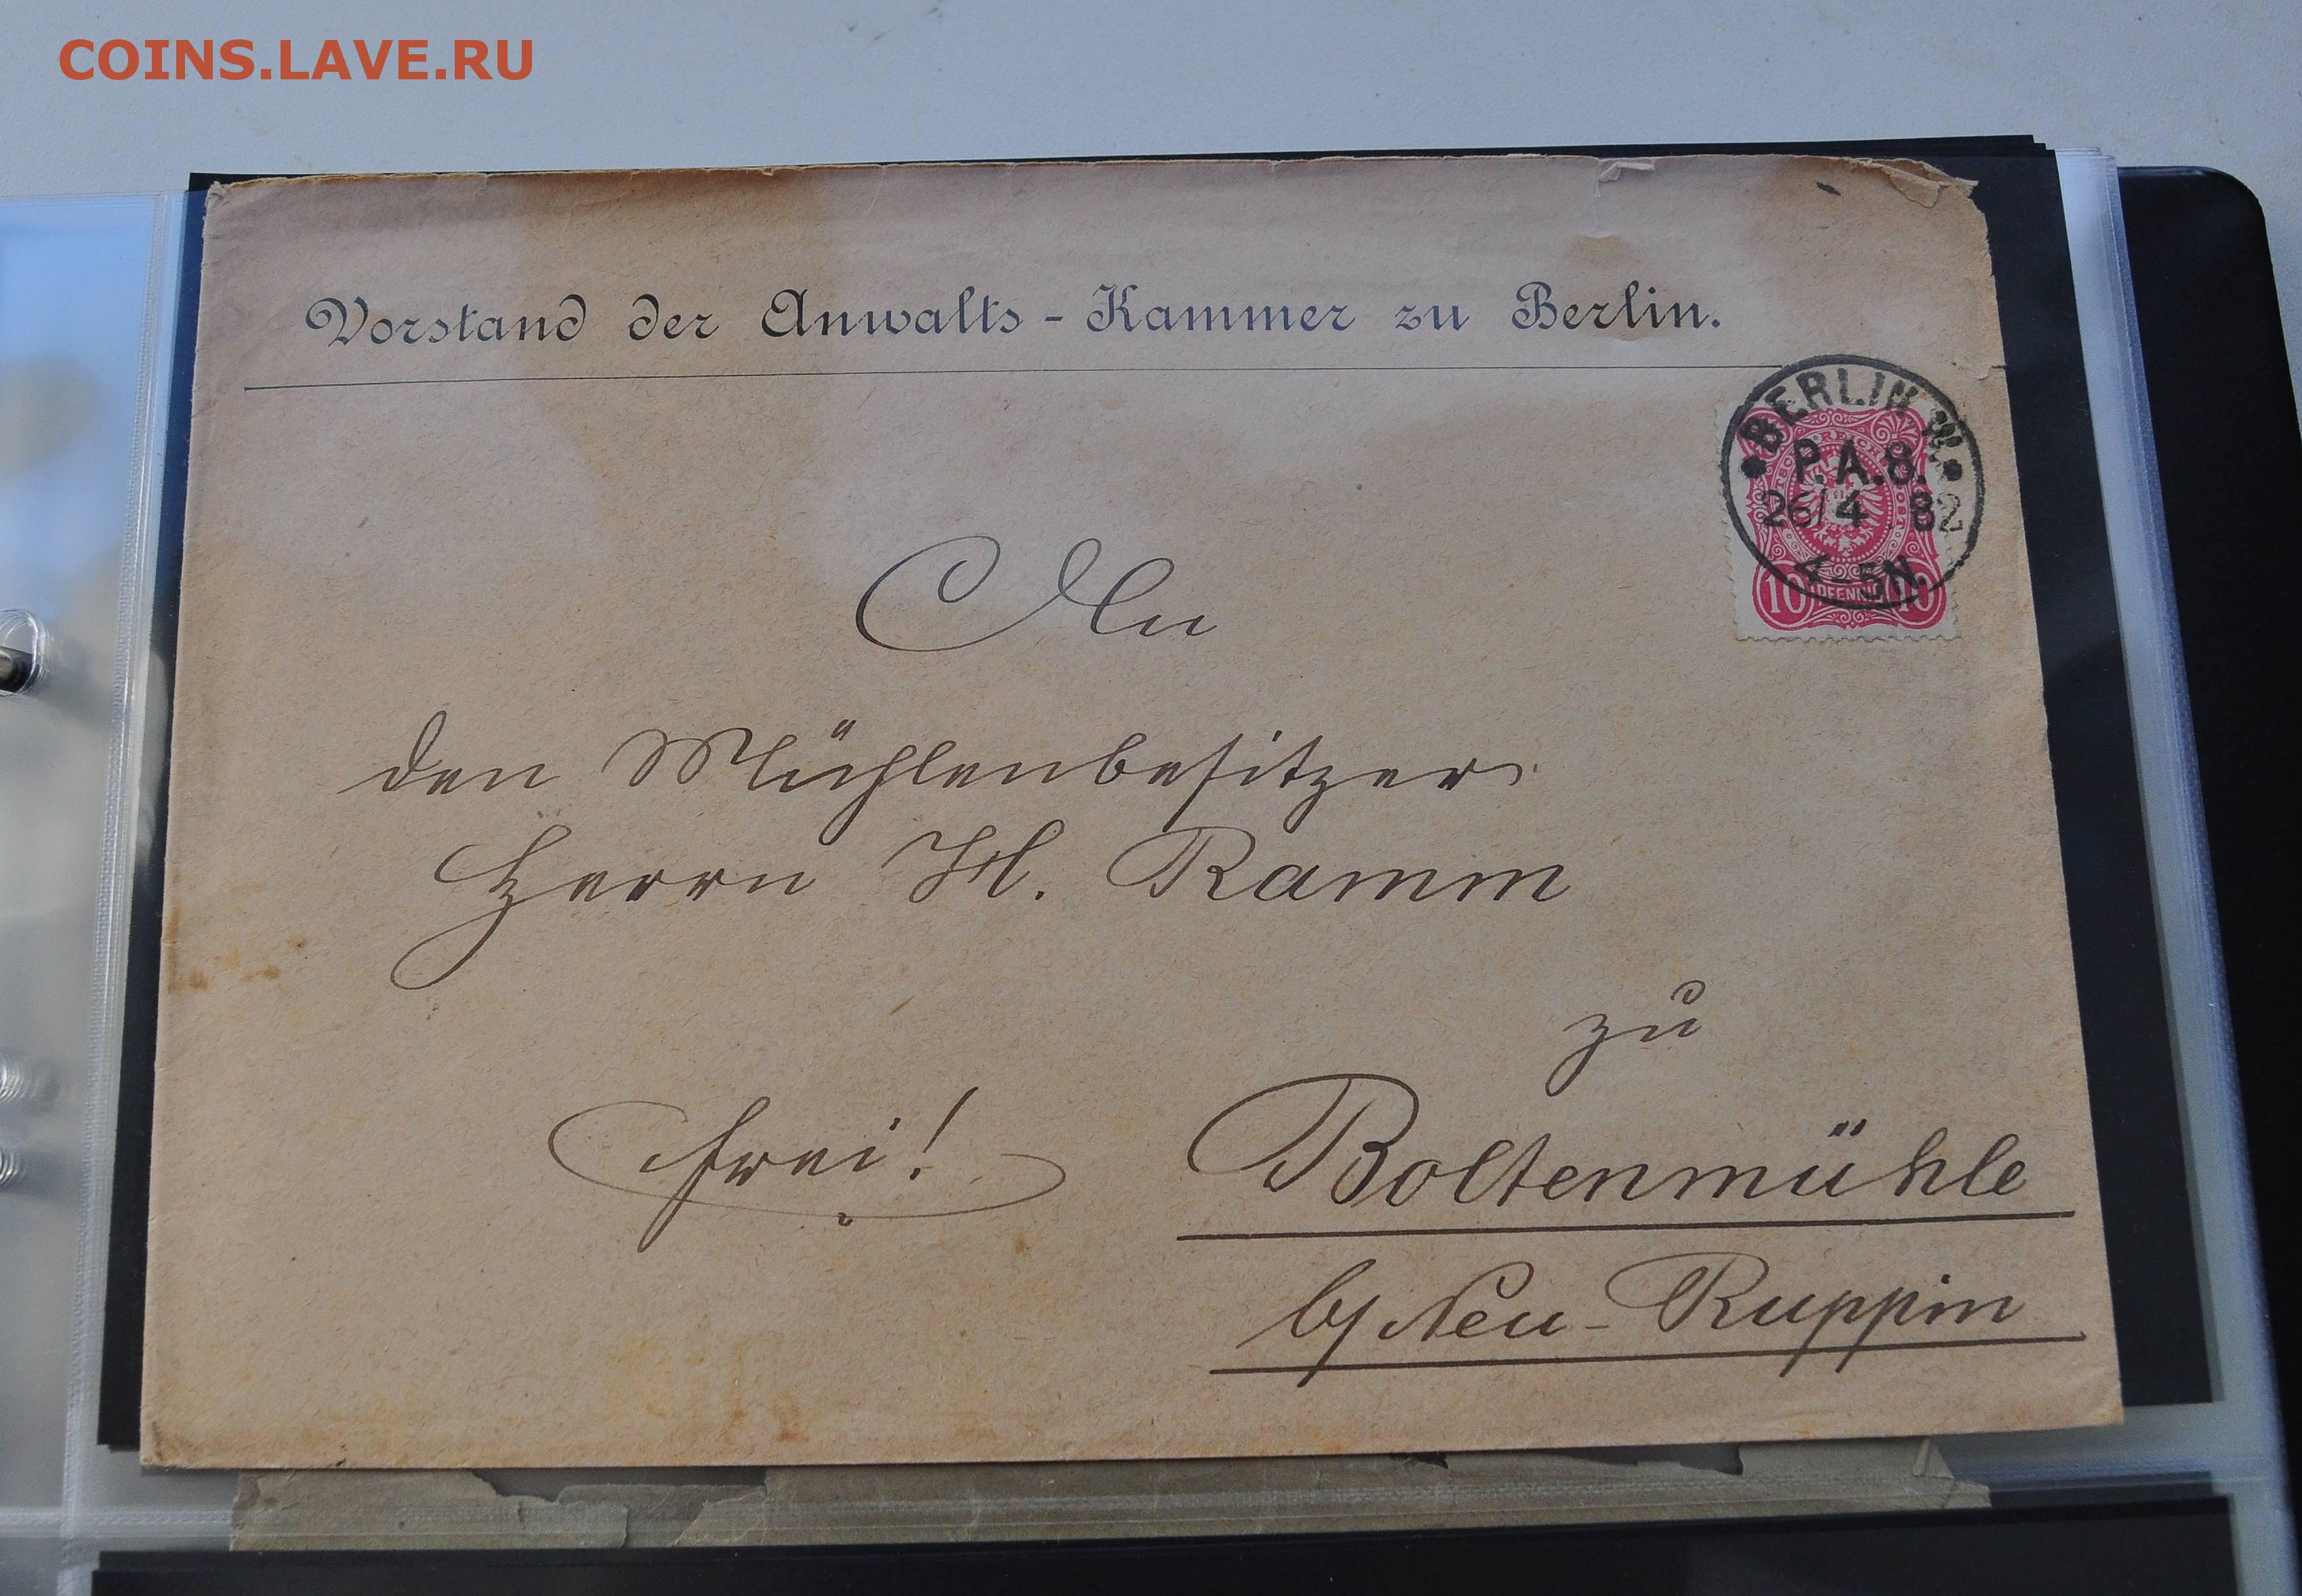 COINS.LAVE.RU
Vorstand der Anwalts-Kammer zu Berlin.
BERLIN W.
P.A.8.
26/4 82
4-5N.
10 PFENNIG 10
An
den Mühlenbesitzer
Herrn H. Ramm
zu
frei!
Boltenmühle
b/ Neu-Ruppin